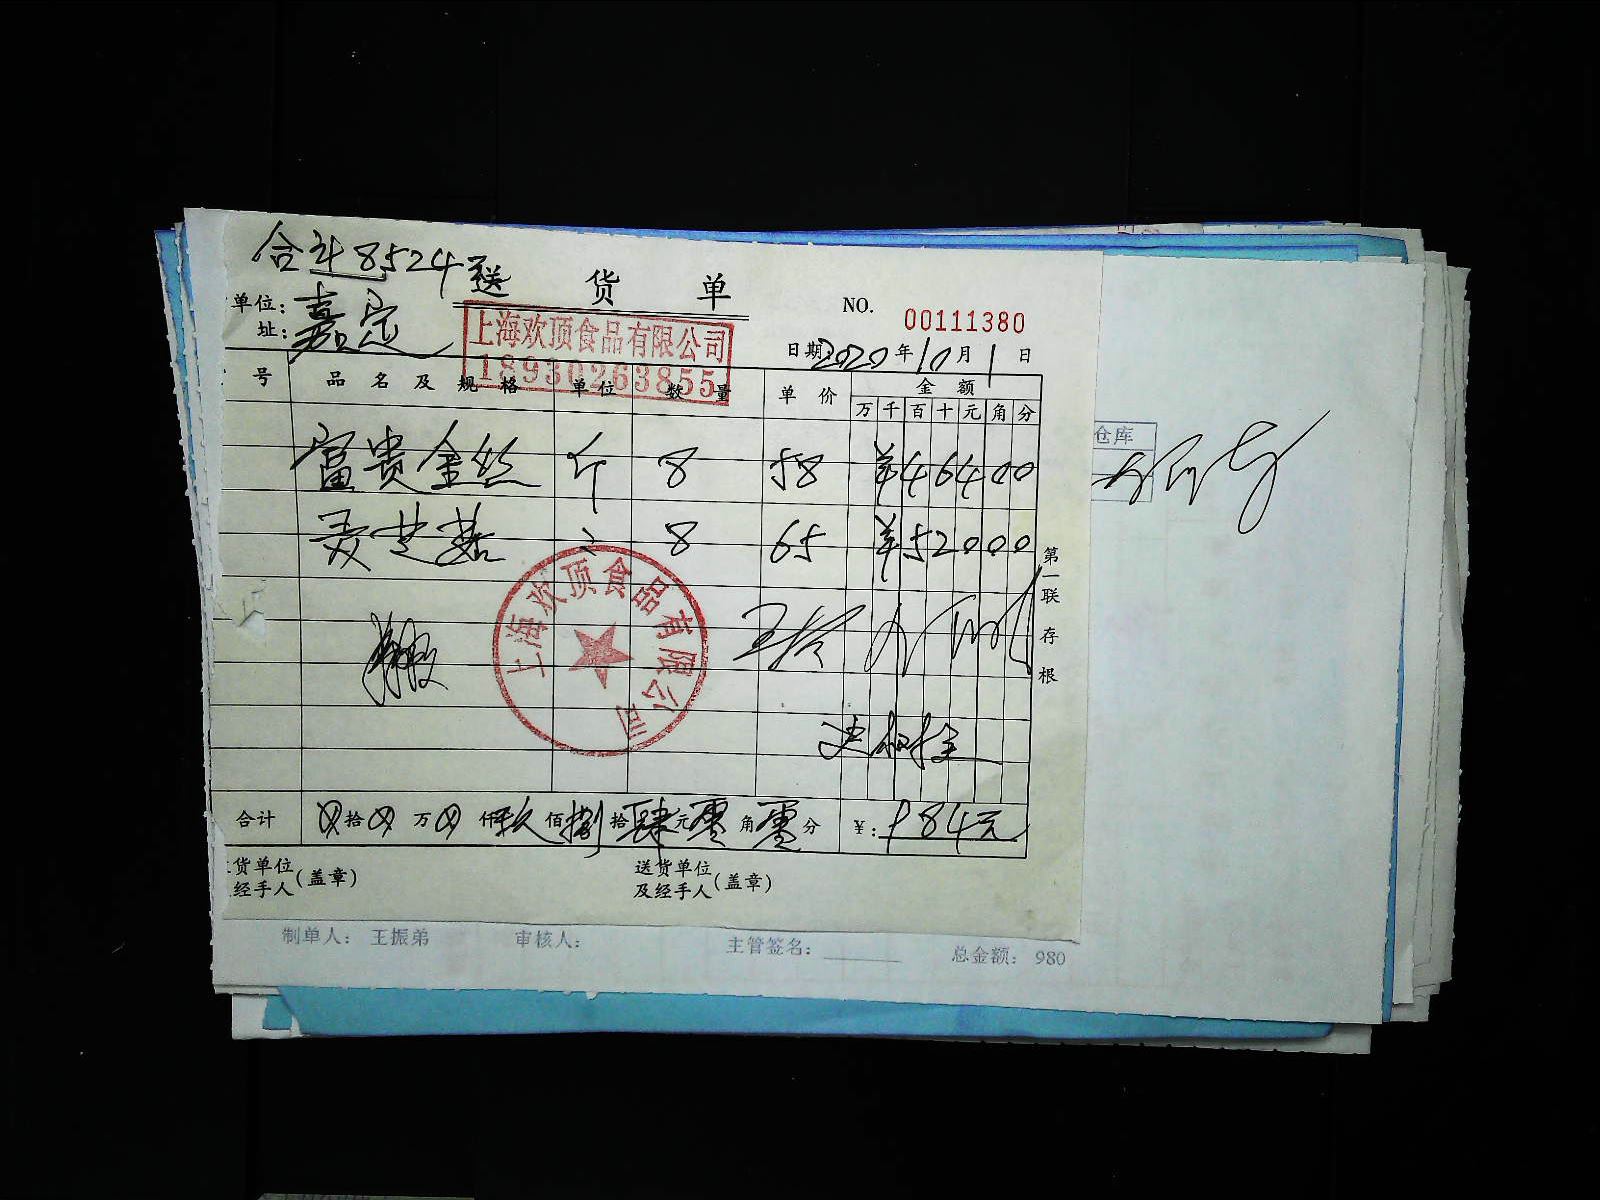 合计8524
送 货 单
单位:
址: 嘉定
上海欢顶食品有限公司
18930263855
NO. 00111380
日期 2020 年 10 月 1 日
号 品名及规格 单位 数量 单价 金额
万 千 百 十 元 角 分
富贵金丝 斤 8 58 ¥46400
8 65 ¥52000
上海欢顶食品有限公司
第一联 存根
仓库
合计 拾 万 仟 玖 佰 捌 拾 肆 元 零 角 零 分 ¥: 984元
货单位
经手人(盖章)
送货单位
及经手人(盖章)
制单人: 王振弟 审核人: 主管签名: 总金额: 980